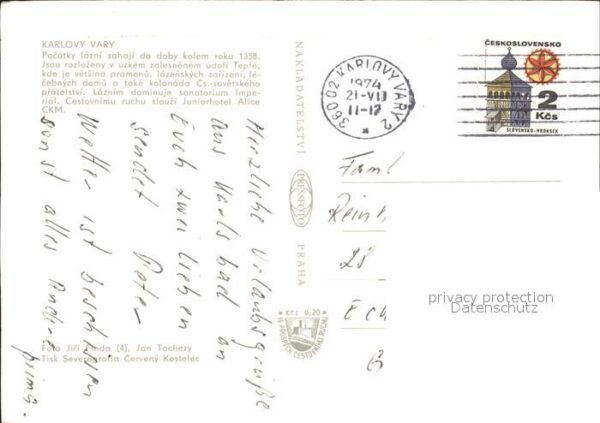 KARLOVY VARY
Počátky lázní sahají do doby kolem roku 1358.
Jsou rozloženy v úzkém zalesněném údolí Teplé,
kde je většina pramenů, lázeňských zařízení, lé-
čebných domů a také kolonáda Čs.-sovětského
přátelství. Lázním dominuje sanatorium Impe-
riál. Cestovnímu ruchu slouží Juniorhotel Alice
CKM.
Herzliche Urlaubsgrüße
aus Karlsbad an
Euch zwei Lieben
sendet Pate
Wetter ist beschissen
sonst alles
prima.
Foto Jiří (4), Jan Tachezy
Tisk Severografia Červený Kostelec
NAKLADATELSTVÍ
PRESSFOTO
PRAHA
Kčs 0,20
VE PROSPĚCH CESTOVNÍHO RUCHU
360 02 KARLOVY VARY 2
1974
21-VII
11-12
ČESKOSLOVENSKO
2
Kčs
SLOVENSKO-HRONSEK
Fam
Rein
28
privacy protection
Datenschutz